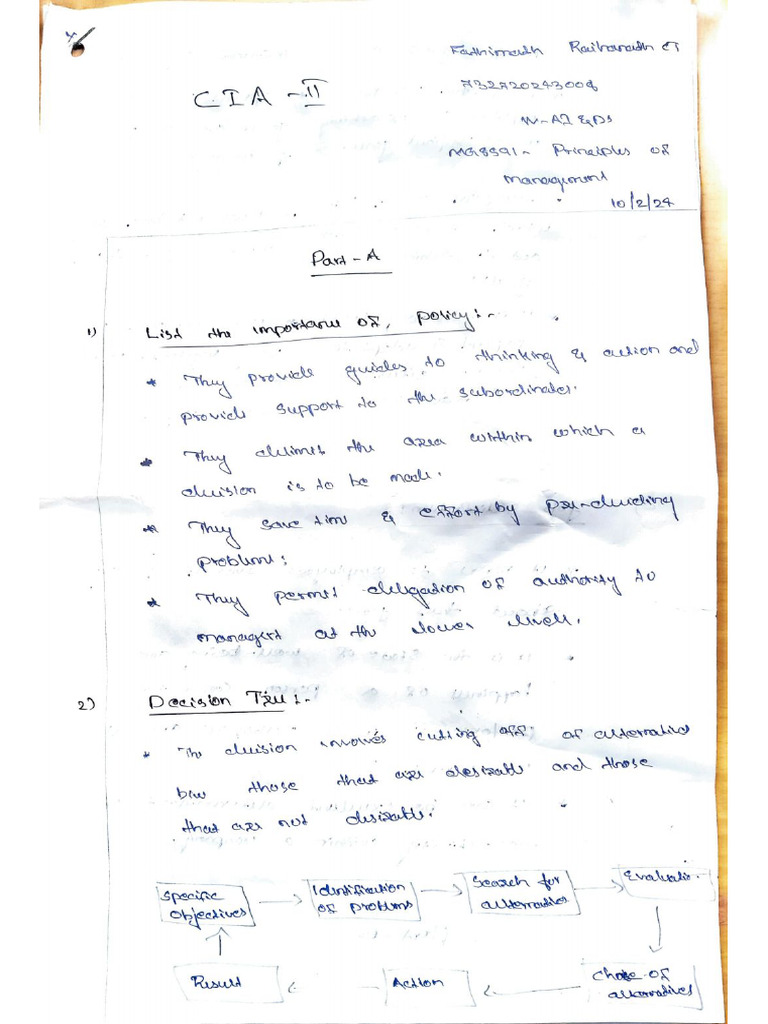 Fathimath Raihanath CT
CIA - II
732720243008
IV-AI & DS
MG8591- Principles of
management
10/2/24
Part-A
1) List the importance of policy:-
* They provide guides to thinking & action and
provide support to the subordinates.
* They delimit the area within which a
decision is to be made.
* They save time & effort by pre-deciding
problems:
* They permit delegation of authority to
managers at the lower levels.
2) Decision Tree:-
* The decision involves cutting off of alternatives
b/w those that are desirable and those
that are not desirable.
Specific
objectives
Identification
of problems
Search for
alternatives
Evaluatio.
Choise of
alternatives
Action
Result